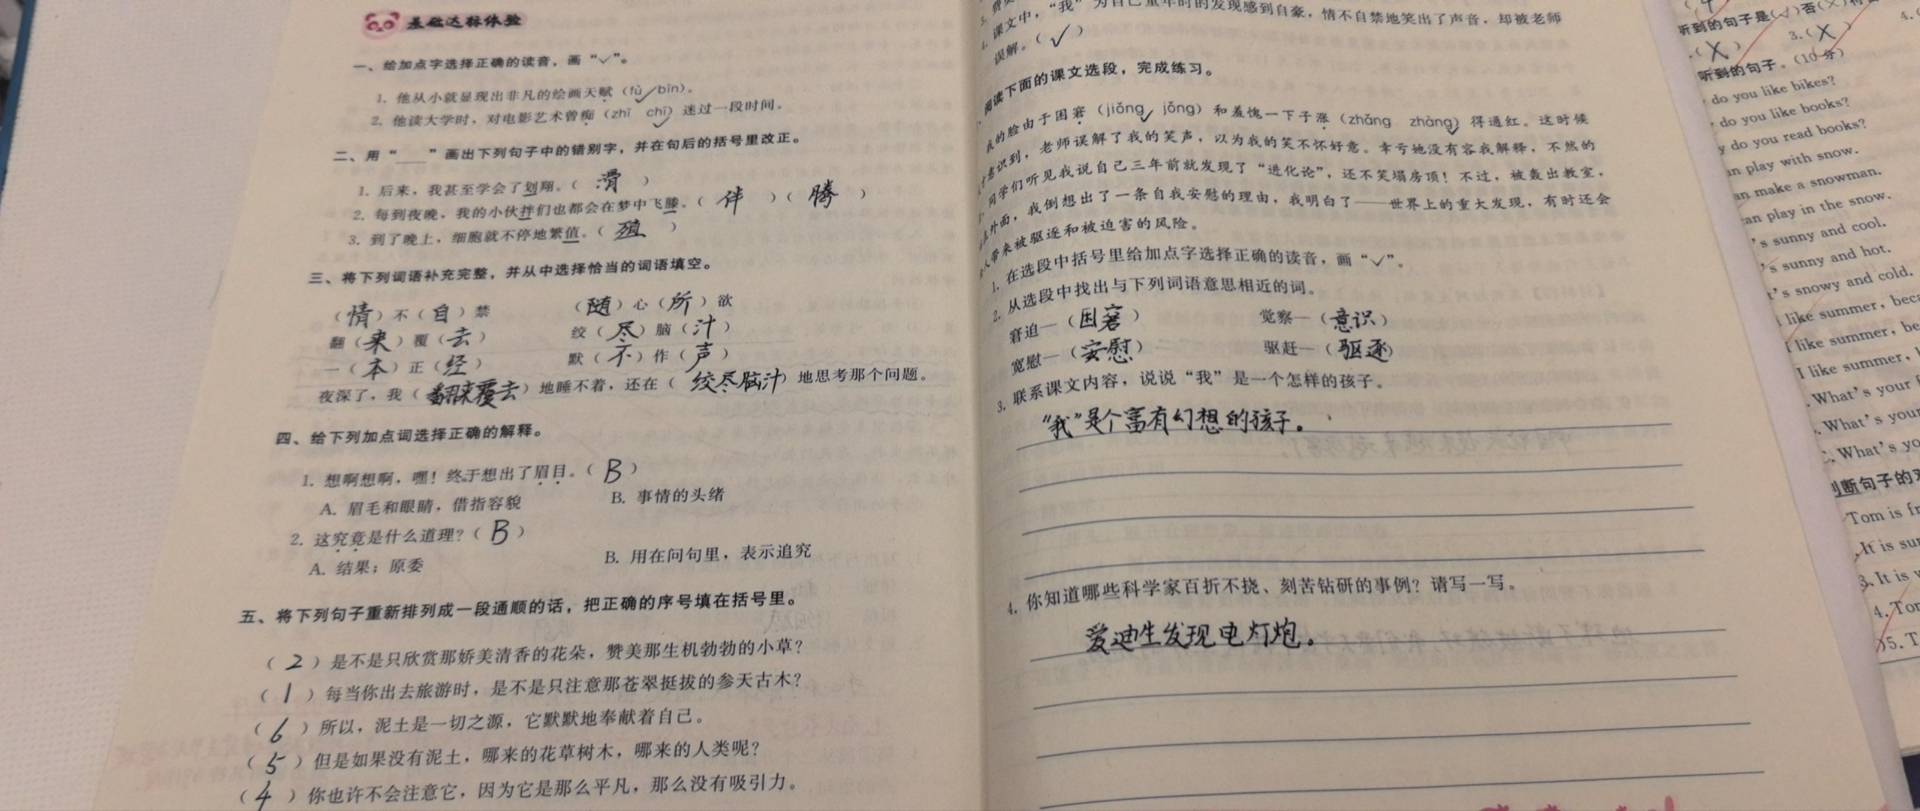 基础达标体验
一、给加点字选择正确的读音，画“√”。
1. 他从小就显现出非凡的绘画天赋（fù√bīn）。
2. 他读大学时，对电影艺术曾痴（zhī chī√）迷过一段时间。
二、用“____”画出下列句子中的错别字，并在句后的括号里改正。
1. 后来，我甚至学会了划翔。（滑）
2. 每到夜晚，我的小伙拌们也都会在梦中飞滕。（伴）（腾）
3. 到了晚上，细胞就不停地繁值。（殖）
三、将下列词语补充完整，并从中选择恰当的词语填空。
（情）不（自）禁 （随）心（所）欲
翻（来）覆（去） 绞（尽）脑（汁）
一（本）正（经） 默（不）作（声）
夜深了，我（翻来覆去）地睡不着，还在（绞尽脑汁）地思考那个问题。
四、给下列加点词选择正确的解释。
1. 想啊想啊，嘿！终于想出了眉目。（B）
A. 眉毛和眼睛，借指容貌 B. 事情的头绪
2. 这究竟是什么道理？（B）
A. 结果；原委 B. 用在问句里，表示追究
五、将下列句子重新排列成一段通顺的话，把正确的序号填在括号里。
（2）是不是只欣赏那娇美清香的花朵，赞美那生机勃勃的小草？
（1）每当你出去旅游时，是不是只注意那苍翠挺拔的参天古木？
（6）所以，泥土是一切之源，它默默地奉献着自己。
（5）但是如果没有泥土，哪来的花草树木，哪来的人类呢？
（4）你也许不会注意它，因为它是那么平凡，那么没有吸引力。
4. 课文中，“我”为自己童年时的发现感到自豪，情不自禁地笑出了声音，却被老师
误解。（√）
阅读下面的课文选段，完成练习。
我的脸由于困窘（jiǒng√ jǒng）和羞愧一下子涨（zhāng zhàng√）得通红。这时候
才意识到，老师误解了我的笑声，以为我的笑不怀好意。幸亏她没有容我解释，不然的
同学们听见我说自己三年前就发现了“进化论”，还不笑塌房顶！不过，被轰出教室，
外面，我倒想出了一条自我安慰的理由，我明白了——世界上的重大发现，有时还会
人带来被驱逐和被迫害的风险。
1. 在选段中括号里给加点字选择正确的读音，画“√”。
2. 从选段中找出与下列词语意思相近的词。
窘迫—（困窘） 觉察—（意识）
宽慰—（安慰） 驱赶—（驱逐）
3. 联系课文内容，说说“我”是一个怎样的孩子。
“我”是个富有幻想的孩子。
4. 你知道哪些科学家百折不挠、刻苦钻研的事例？请写一写。
爱迪生发现电灯炮。
听到的句子是（√）否（×）
（X） 3.（X）
听到的句子。（10分）
do you like bikes?
do you like books?
do you read books?
play with snow.
make a snowman.
play in the snow.
's sunny and cool.
's sunny and hot.
t's snowy and cold.
like summer,
like summer,
I like summer,
What's your
What's your
What's
判断句子的
Tom is
It is
3. It is
4.
5.